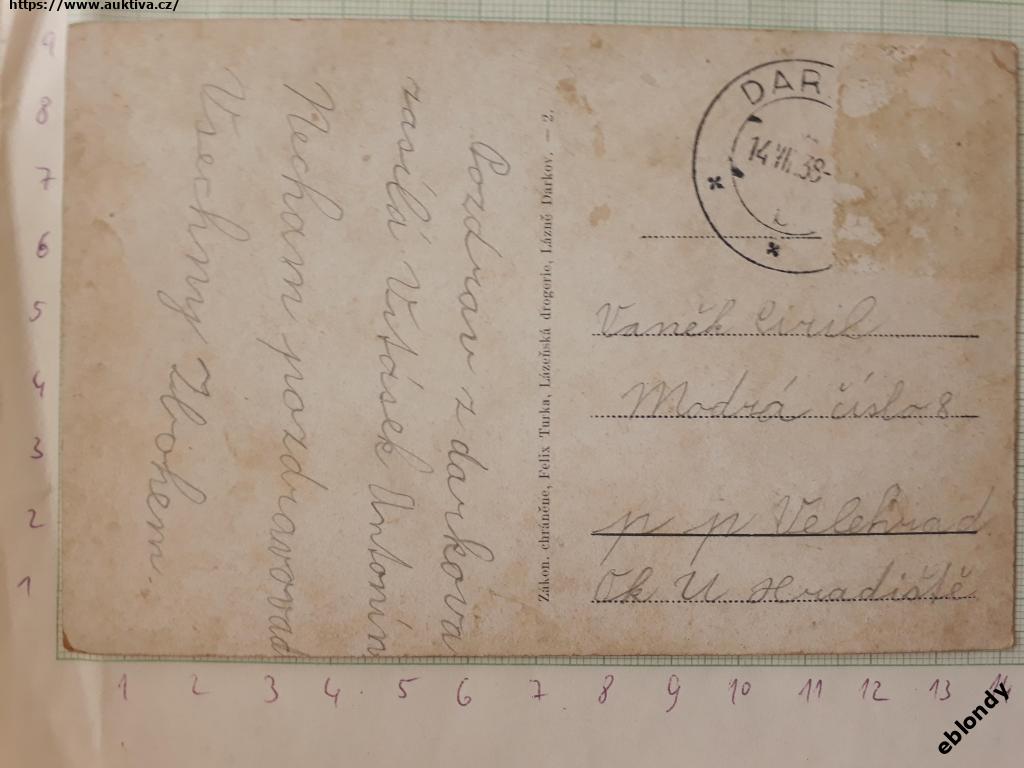 https://www.auktiva.cz/
DAR
14 VII. 38-
Pozdrav z darkova
zasílá Vitásek Antonín
Necham pozdravovad
Vsechny Zbohem.
Zákon. chráněne, Felix Turka, Lázeňská drogerie, Lázně Darkov. — 2.
Vaněk Ciril
Modrá číslo 8
p p Velehrad
Ok U Hradiště
9
8
7
6
5
4
3
2
1
1 2 3 4 5 6 7 8 9 10 11 12 13 14
eblondy